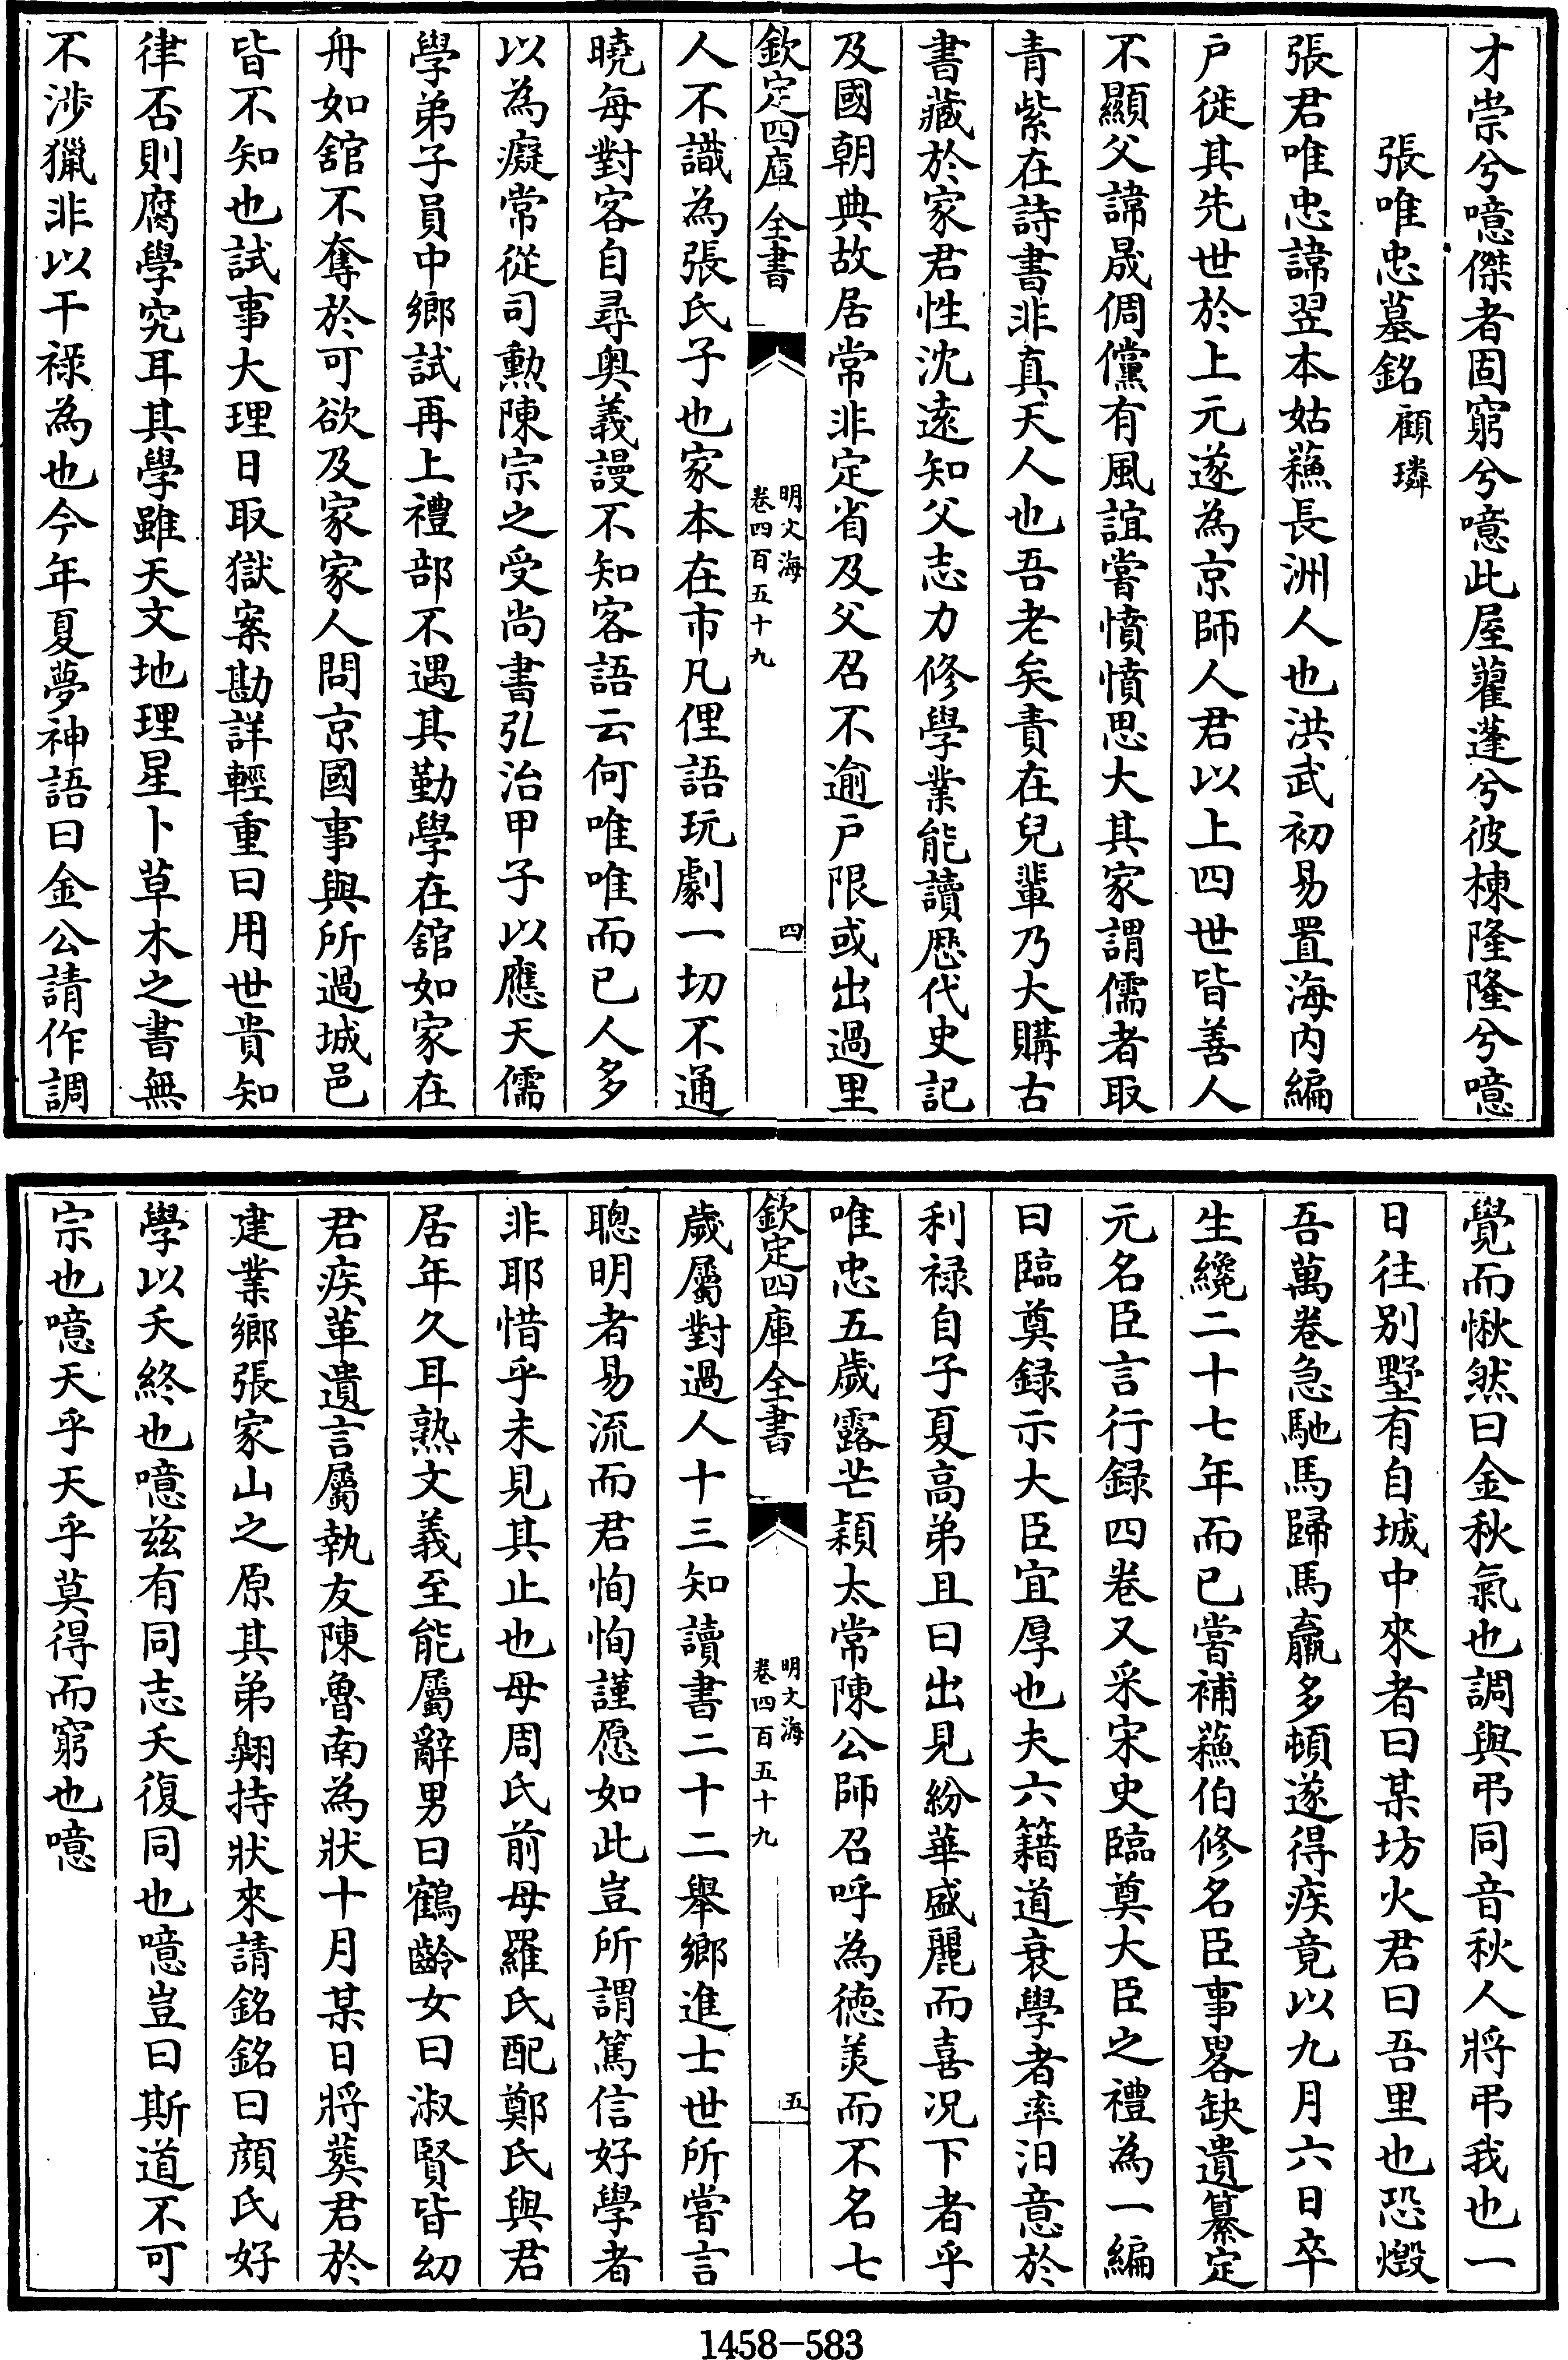 才崇兮噫傑者固窮兮噫此屋藋蓬兮彼棟隆隆兮噫
張唯忠墓銘顧璘
張君唯忠諱翌本姑蘓長洲人也洪武初易置海内編
户徙其先世於上元遂為京師人君以上四世皆善人
不顯父諱晟倜儻有風誼嘗憤憤思大其家謂儒者取
青紫在詩書非真天人也吾老矣責在兒輩乃大購古
書藏於家君性沈遠知父志力修學業能讀歴代史記
及國朝典故居常非定省及父召不逾户限或出過里
欽定四庫全書
明文海
卷四百五十九
四
人不識為張氏子也家本在市凡俚語玩劇一切不通
曉每對客自尋奥義謾不知客語云何唯唯而已人多
以為癡常從司勲陳宗之受尚書弘治甲子以應天儒
學弟子員中鄉試再上禮部不遇其勤學在舘如家在
舟如舘不奪於可欲及家家人問京國事與所過城邑
皆不知也試事大理日取獄案勘詳輕重曰用世貴知
律否則腐學究耳其學雖天文地理星卜草木之書無
不渉獵非以干禄為也今年夏夢神語曰金公請作調
覺而愀然曰金秋氣也調與弔同音秋人將弔我也一
日往别墅有自城中來者曰某坊火君曰吾里也恐燬
吾萬卷急馳馬歸馬羸多頓遂得疾竟以九月六日卒
生纔二十七年而已嘗補蘓伯修名臣事畧缺遺纂定
元名臣言行録四卷又采宋史臨奠大臣之禮為一編
曰臨奠録示大臣宜厚也夫六籍道衰學者率汩意於
利禄自子夏高弟且曰出見紛華盛麗而喜况下者乎
唯忠五歲露芒頴太常陳公師召呼為德羙而不名七
欽定四庫全書
明文海
卷四百五十九
五
歲屬對過人十三知讀書二十二舉鄉進士世所嘗言
聰明者易流而君恂恂謹愿如此豈所謂篤信好學者
非耶惜乎未見其止也母周氏前母羅氏配鄭氏與君
居年久耳熟文義至能屬辭男曰鶴齡女曰淑賢皆幼
君疾革遺言屬執友陳魯南為狀十月某日將葬君於
建業鄉張家山之原其弟翱持狀來請銘銘曰顔氏好
學以夭終也噫兹有同志夭復同也噫豈曰斯道不可
宗也噫天乎天乎莫得而窮也噫
1458-583